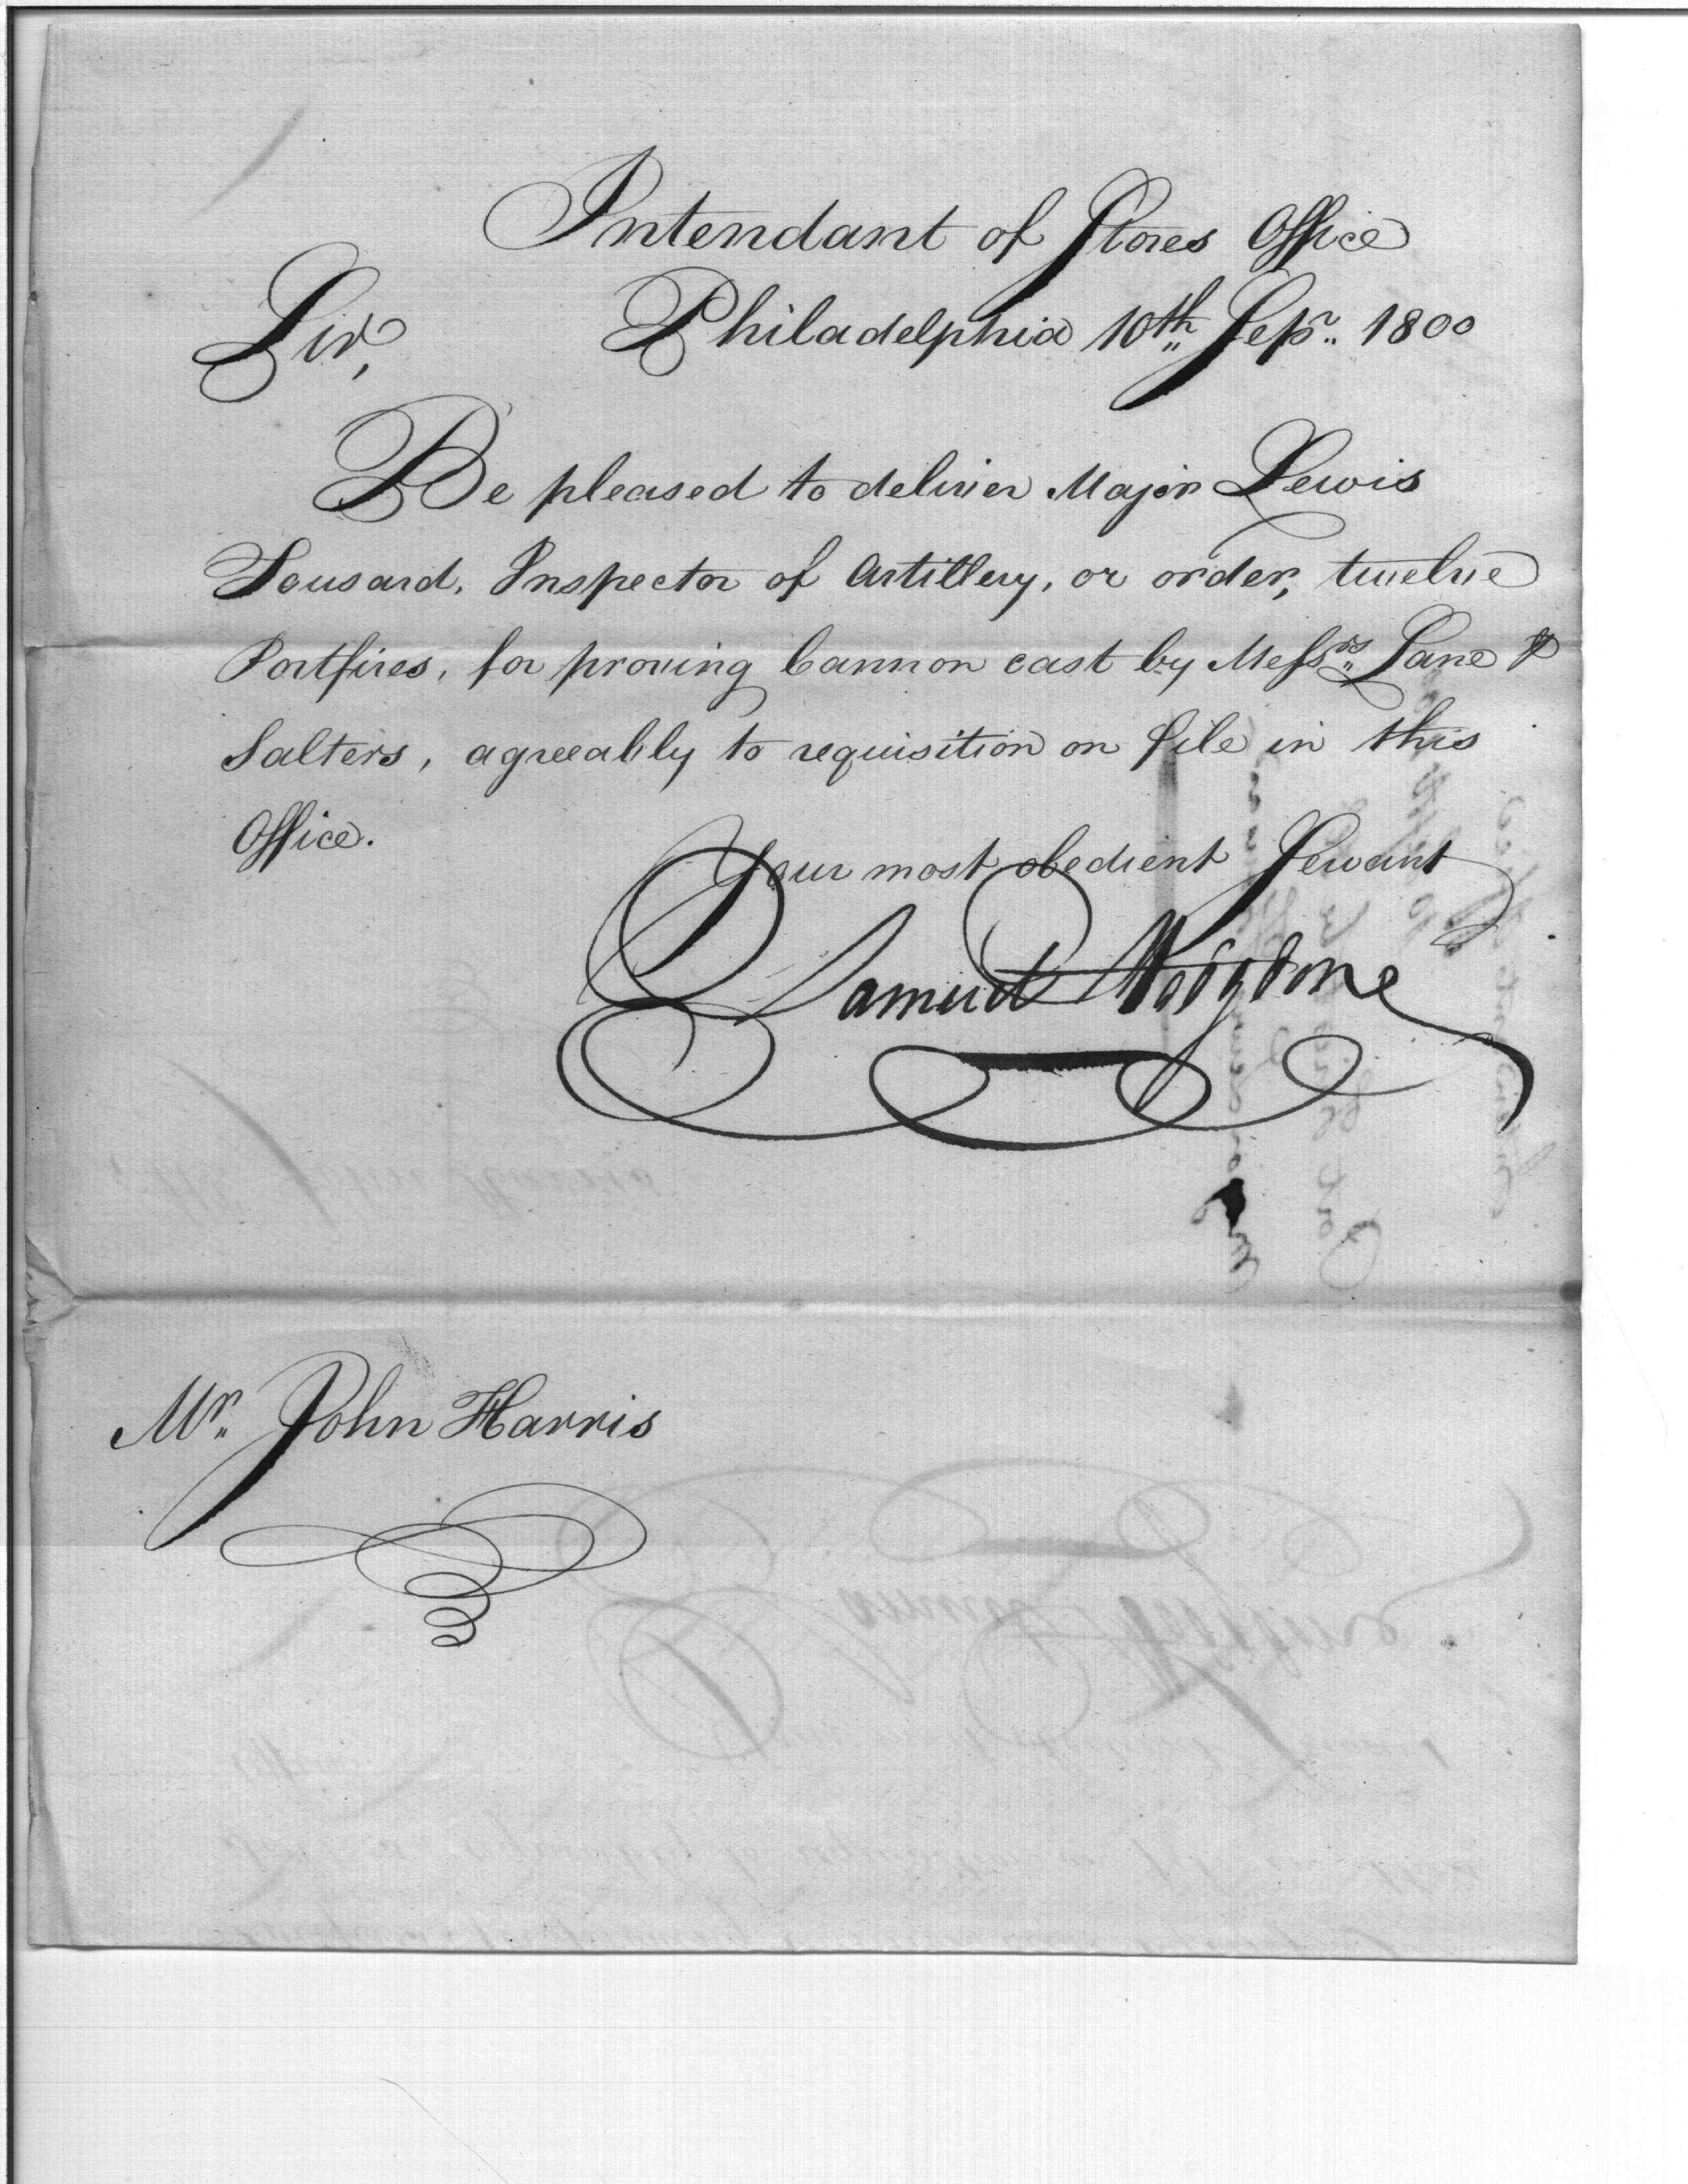 Intendant of Stores Office
Sir, Philadelphia 10th Sepr. 1800
Be pleased to deliver Major Lewis
Tousard, Inspector of Artillery, or order, twelve
Portfires, for proving Cannon cast by Messrs. Lane &
Salters, agreeably to requisition on file in this
Office.
Your most obedient Servant
Samuel Hodgdon
Mr. John Harris